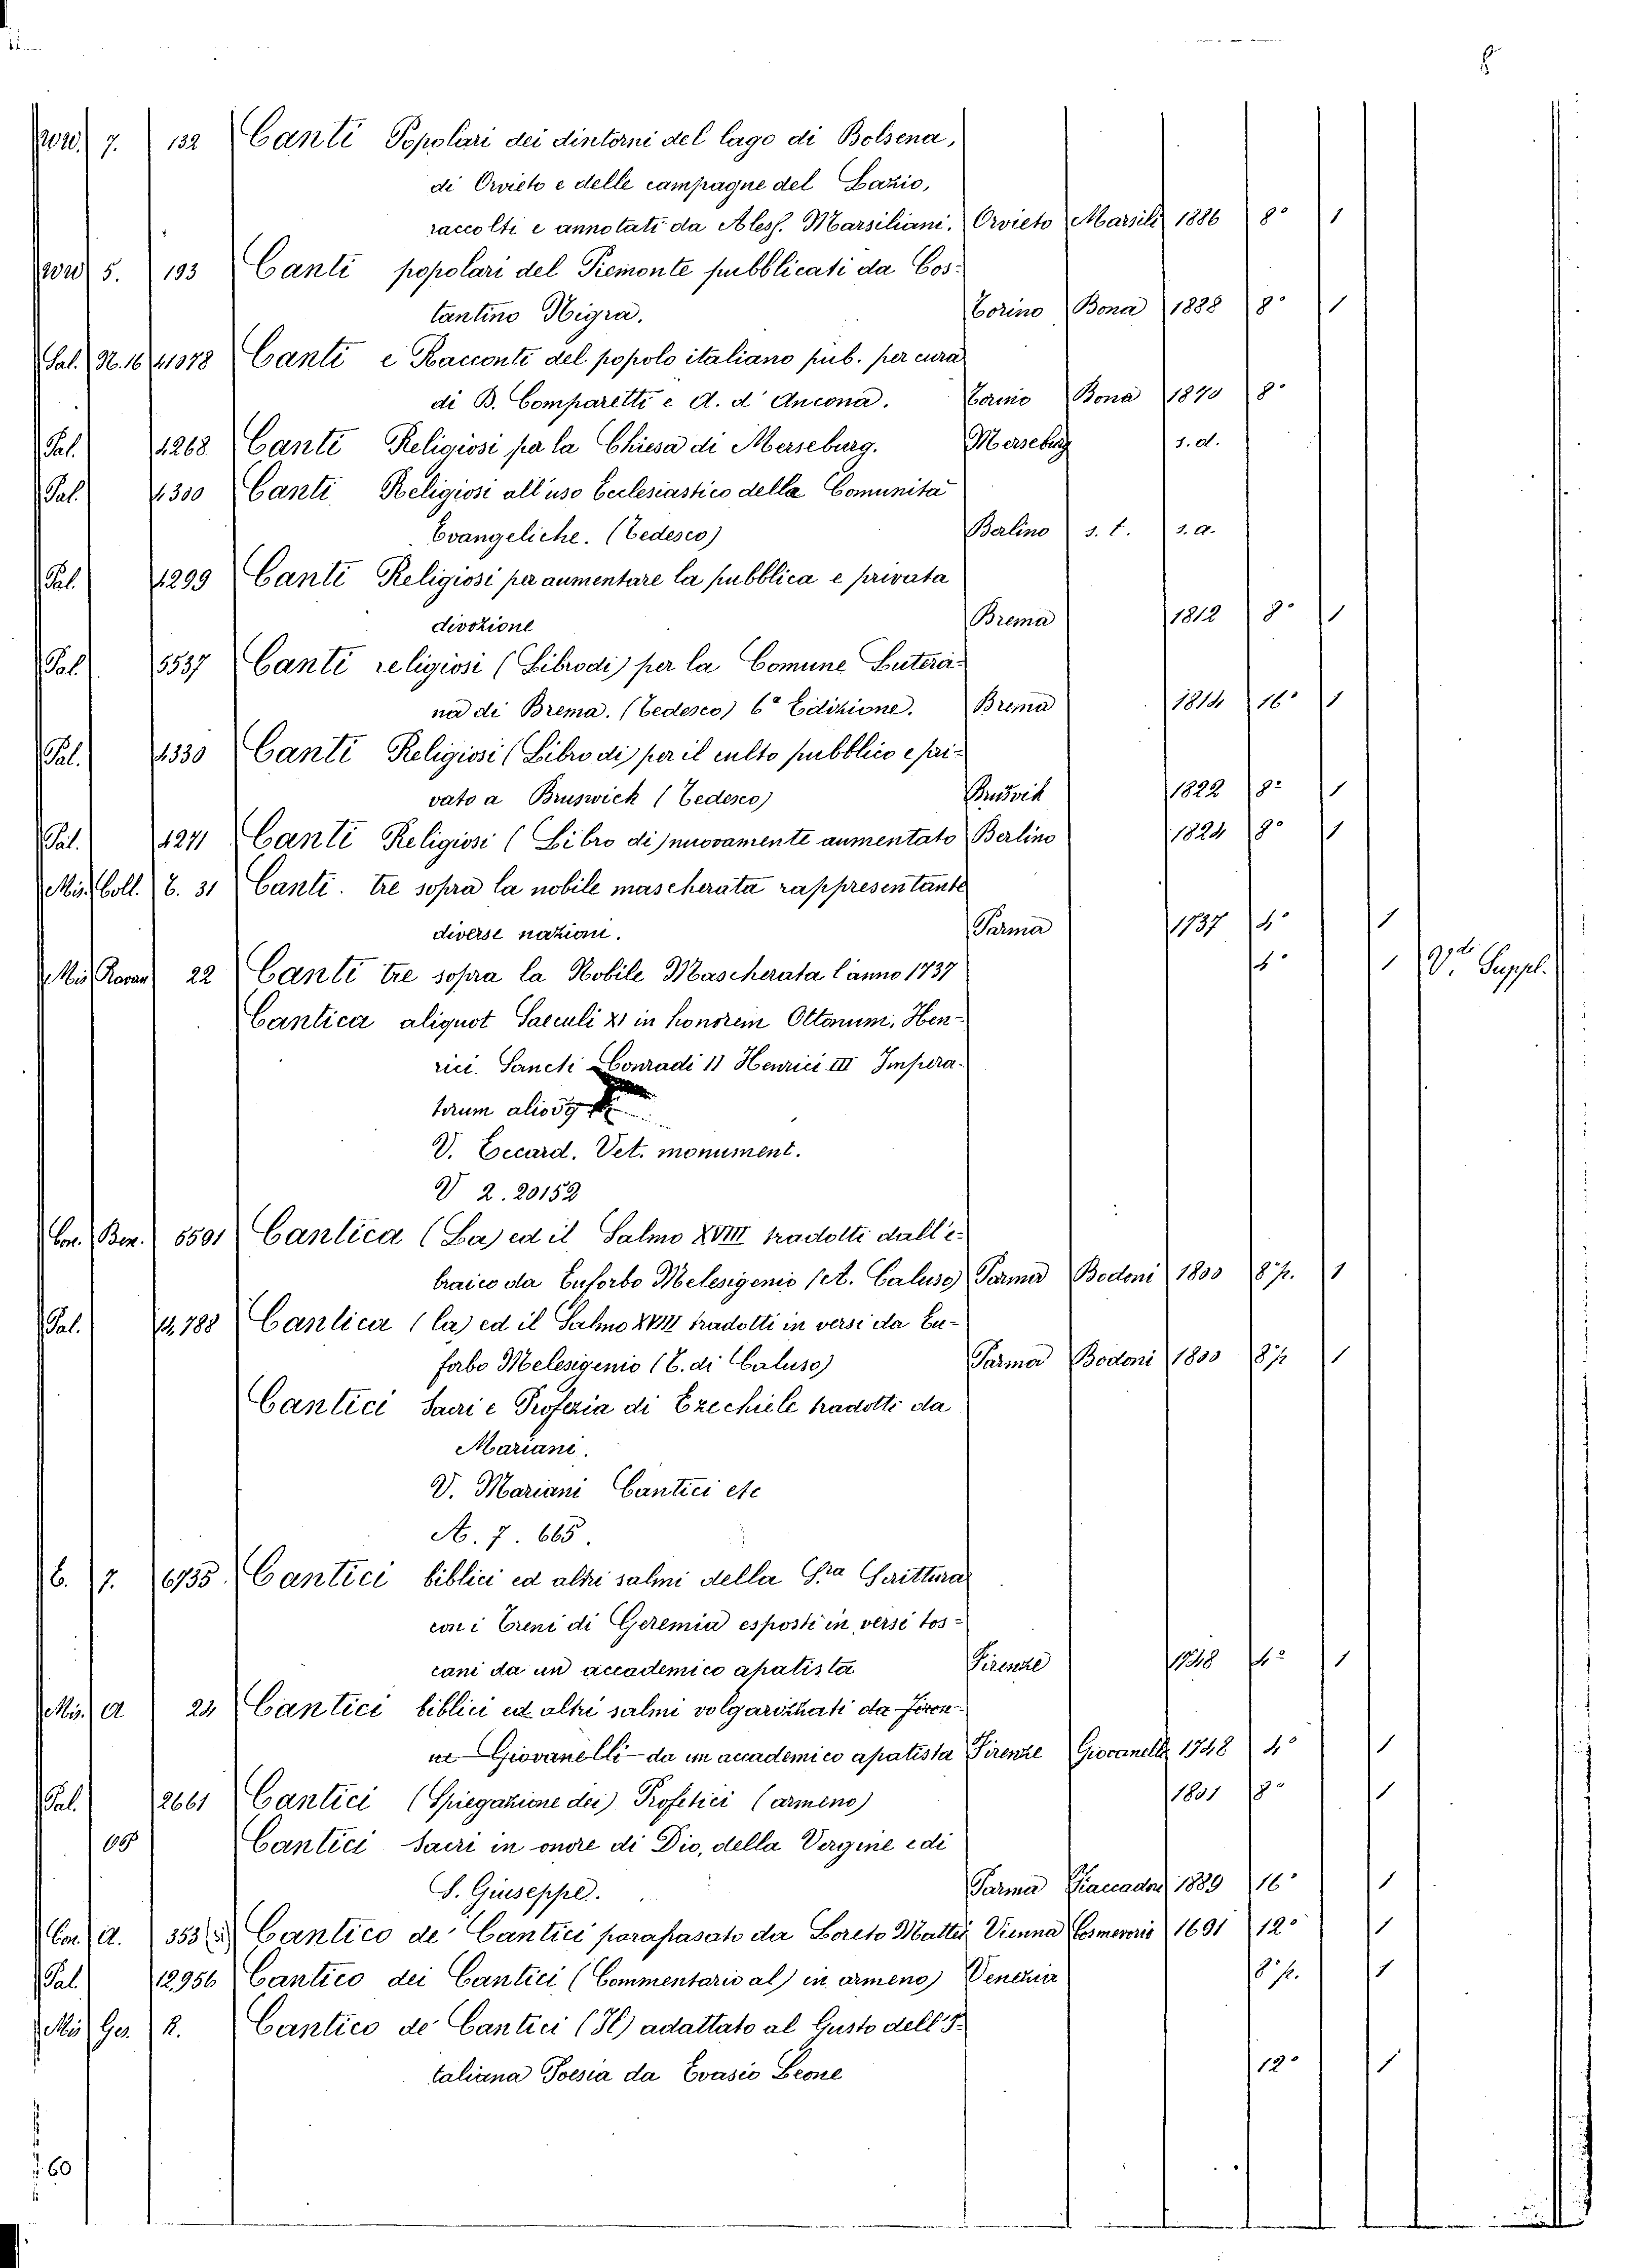 7. 132 Canti Popolari dei dintorni del lago di Bolsena,
di Orvieto e delle campagne del Lazio,
raccolti e annotati da Aless. Marsiliani. Orvieto Marsili 1886 8° 1
5. 193 Canti popolari del Piemonte pubblicati da Cos-
tantino Nigra. Torino Bona 1888 8° 1
Sal. N. 16 41078 Canti e Racconti del popolo italiano pub. per cura
di B. Comparetti e A. d'Ancona. Torino Bona 1870 8°
Pal. 4268 Canti Religiosi per la Chiesa di Merseburg. Merseburg s. d.
Pal. 4300 Canti Religiosi all'uso Ecclesiastico della Comunita
Evangeliche. (Tedesco) Berlino s. t. s. a.
Pal. 4299 Canti Religiosi per aumentare la pubblica e privata
divozione Brema 1812 8° 1
Pal. 5537 Canti religiosi (Libro di) per la Comune Lutera-
na di Brema. (Tedesco) 6ª Edizione. Brema 1814 16° 1
Pal. 4330 Canti Religiosi (Libro di) per il culto pubblico e pri-
vato a Bruswick (Tedesco) Brusvick 1822 8° 1
Pal. 4271 Canti Religiosi (Libro di) nuovamente aumentato Berlino 1824 8° 1
Mis. Coll. C. 31 Canti tre sopra la nobile mascherata rappresentante
diverse nazioni. Parma 1737 4° 1
Mis. Ravan 22 Canti tre sopra la Nobile Mascherata l'anno 1737 4° 1 V.di Suppl.
Cantica aliquot Saeculi XI in honorem Ottonum, Hen-
rici Sancti Conradi II Henrici III Impera-
torum
V. Eccard. Vet. monument.
V 2. 20152
Con. Ben. 5501 Cantica (La) ed il Salmo XVIII tradotti dall'e-
braico da Euforbo Melesigenio (A. Caluso) Parma Bodoni 1800 8° p. 1
Pal. 14,788 Cantica (la) ed il Salmo XVIII tradotti in versi da Eu-
forbo Melesigenio (C. di Caluso) Parma Bodoni 1800 8° p. 1
Cantici Sacri e Profezia di Ezechiele tradotti da
Mariani.
V. Mariani Cantici etc
A. 7. 665.
C. 7. 6735 Cantici biblici ed altri salmi della Sra Scrittura
con i Treni di Geremia esposti in versi tos-
cani da un accademico apatista Firenze 1748 4° 1
Mis. A 24 Cantici biblici ed altri salmi volgarizzati da Firen-
ne Giovanelli da un accademico apatista Firenze Giovanelli 1748 4° 1
Pal. 2661 Cantici (Spiegazione dei) Profetici (armeno) 1801 8° 1
Cantici Sacri in onore di Dio, della Vergine e di
S. Giuseppe. Parma Fiaccadori 1889 16° 1
Con. A. 353 Cantico de' Cantici parafrasato da Loreto Mattei Vienna Cosmerovio 1691 12° 1
Pal. 12,956 Cantico dei Cantici (Commentario al) in armeno) Venezia 8° p. 1
Mis. Ges. R. Cantico de' Cantici (Il) adattato al Gusto dell'I-
taliana Poesia da Evasio Leone 12° 1
60